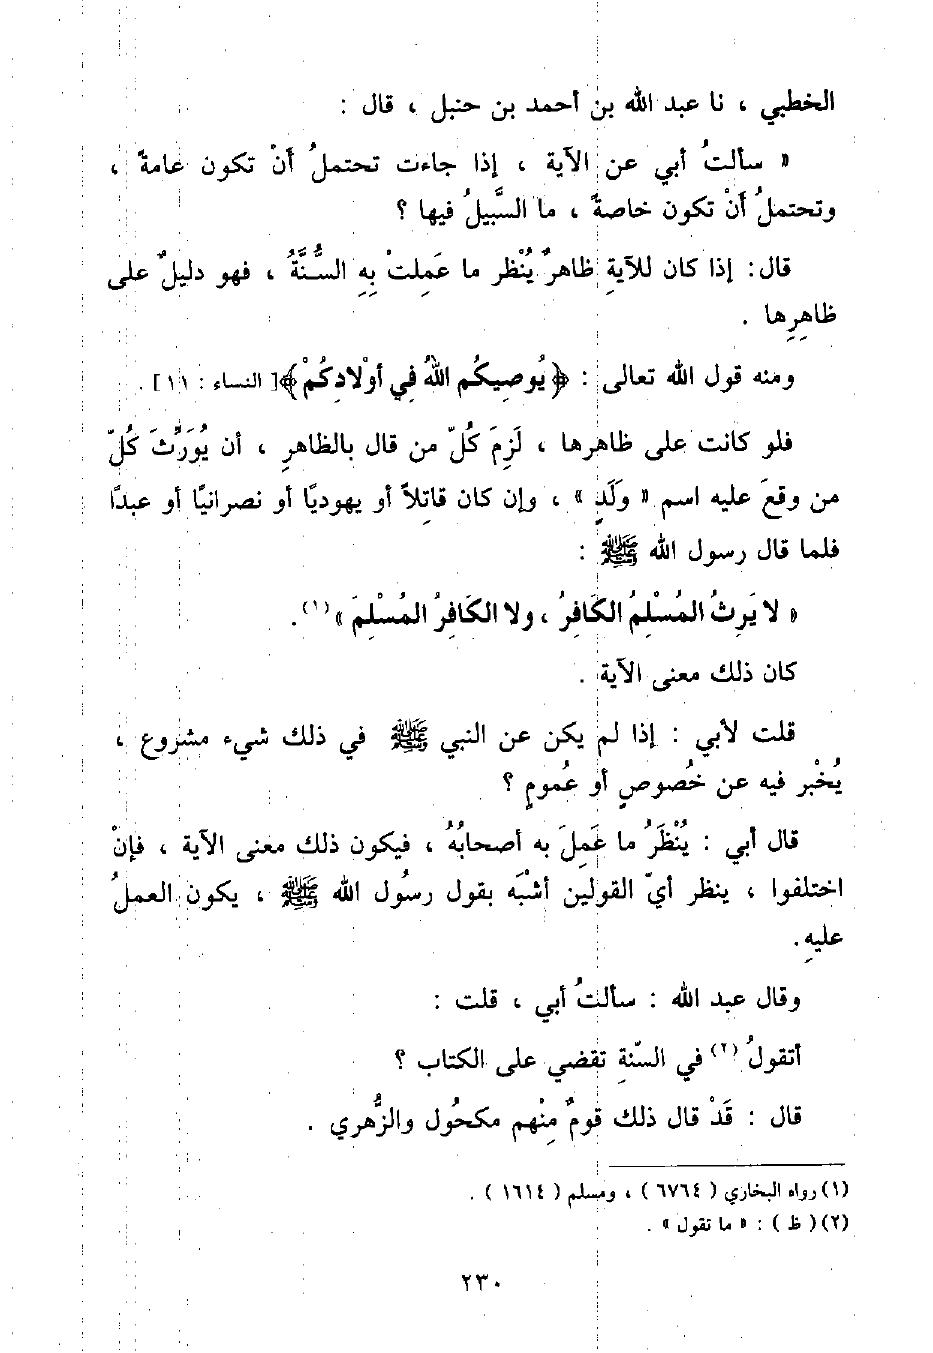 الخطبي ، نا عبد الله بن أحمد بن حنبل ، قال :
« سألتُ أبي عن الآية ، إذا جاءت تحتملُ أنْ تكون عامةً ،
وتحتملُ أنْ تكون خاصةً ، ما السَّبيلُ فيها ؟
قال : إذا كان للآيةِ ظاهرٌ يُنْظر ما عَمِلتْ بِهِ السُّنَّةُ ، فهو دليلٌ على
ظاهِرِها .
ومنه قول الله تعالى : ﴿يُوصِيكُم اللهُ فِي أوْلادِكُمْ﴾[ النساء : ١١ ] .
فلو كانت على ظاهرها ، لَزِمَ كُلّ من قال بالظاهرِ ، أن يُوَرِّثَ كُلّ
من وقعَ عليه اسم « وَلَدٍ » ، وإن كان قاتِلاً أو يهوديًا أو نصرانيًا أو عبدًا
فلما قال رسول الله ﷺ :
« لا يَرِثُ المُسْلِمُ الكَافِرُ ، ولا الكَافِرُ المُسْلِمَ »(١) .
كان ذلك معنى الآية .
قلت لأبي : إذا لم يكن عن النبي ﷺ في ذلك شيء مشروع ،
يُخْبر فيه عن خُصوصٍ أو عُمومٍ ؟
قال أبي : يُنْظَرُ ما عَمِلَ به أصحابُهُ ، فيكون ذلك معنى الآية ، فإنْ
اختلفوا ، ينظر أيّ القولين أشْبَه بقول رسُول الله ﷺ ، يكون العملُ
عليهِ .
وقال عبد الله : سألتُ أبي ، قلت :
أتقولُ (٢) في السّنةِ تقضي على الكتاب ؟
قال : قَدْ قال ذلك قومٌ مِنْهم مكحُول والزُّهري .
(١) رواه البخاري ( ٦٧٦٤ ) ، ومسلم ( ١٦١٤ ) .
(٢) ( ظ ) : « ما تقول » .
٢٣٠